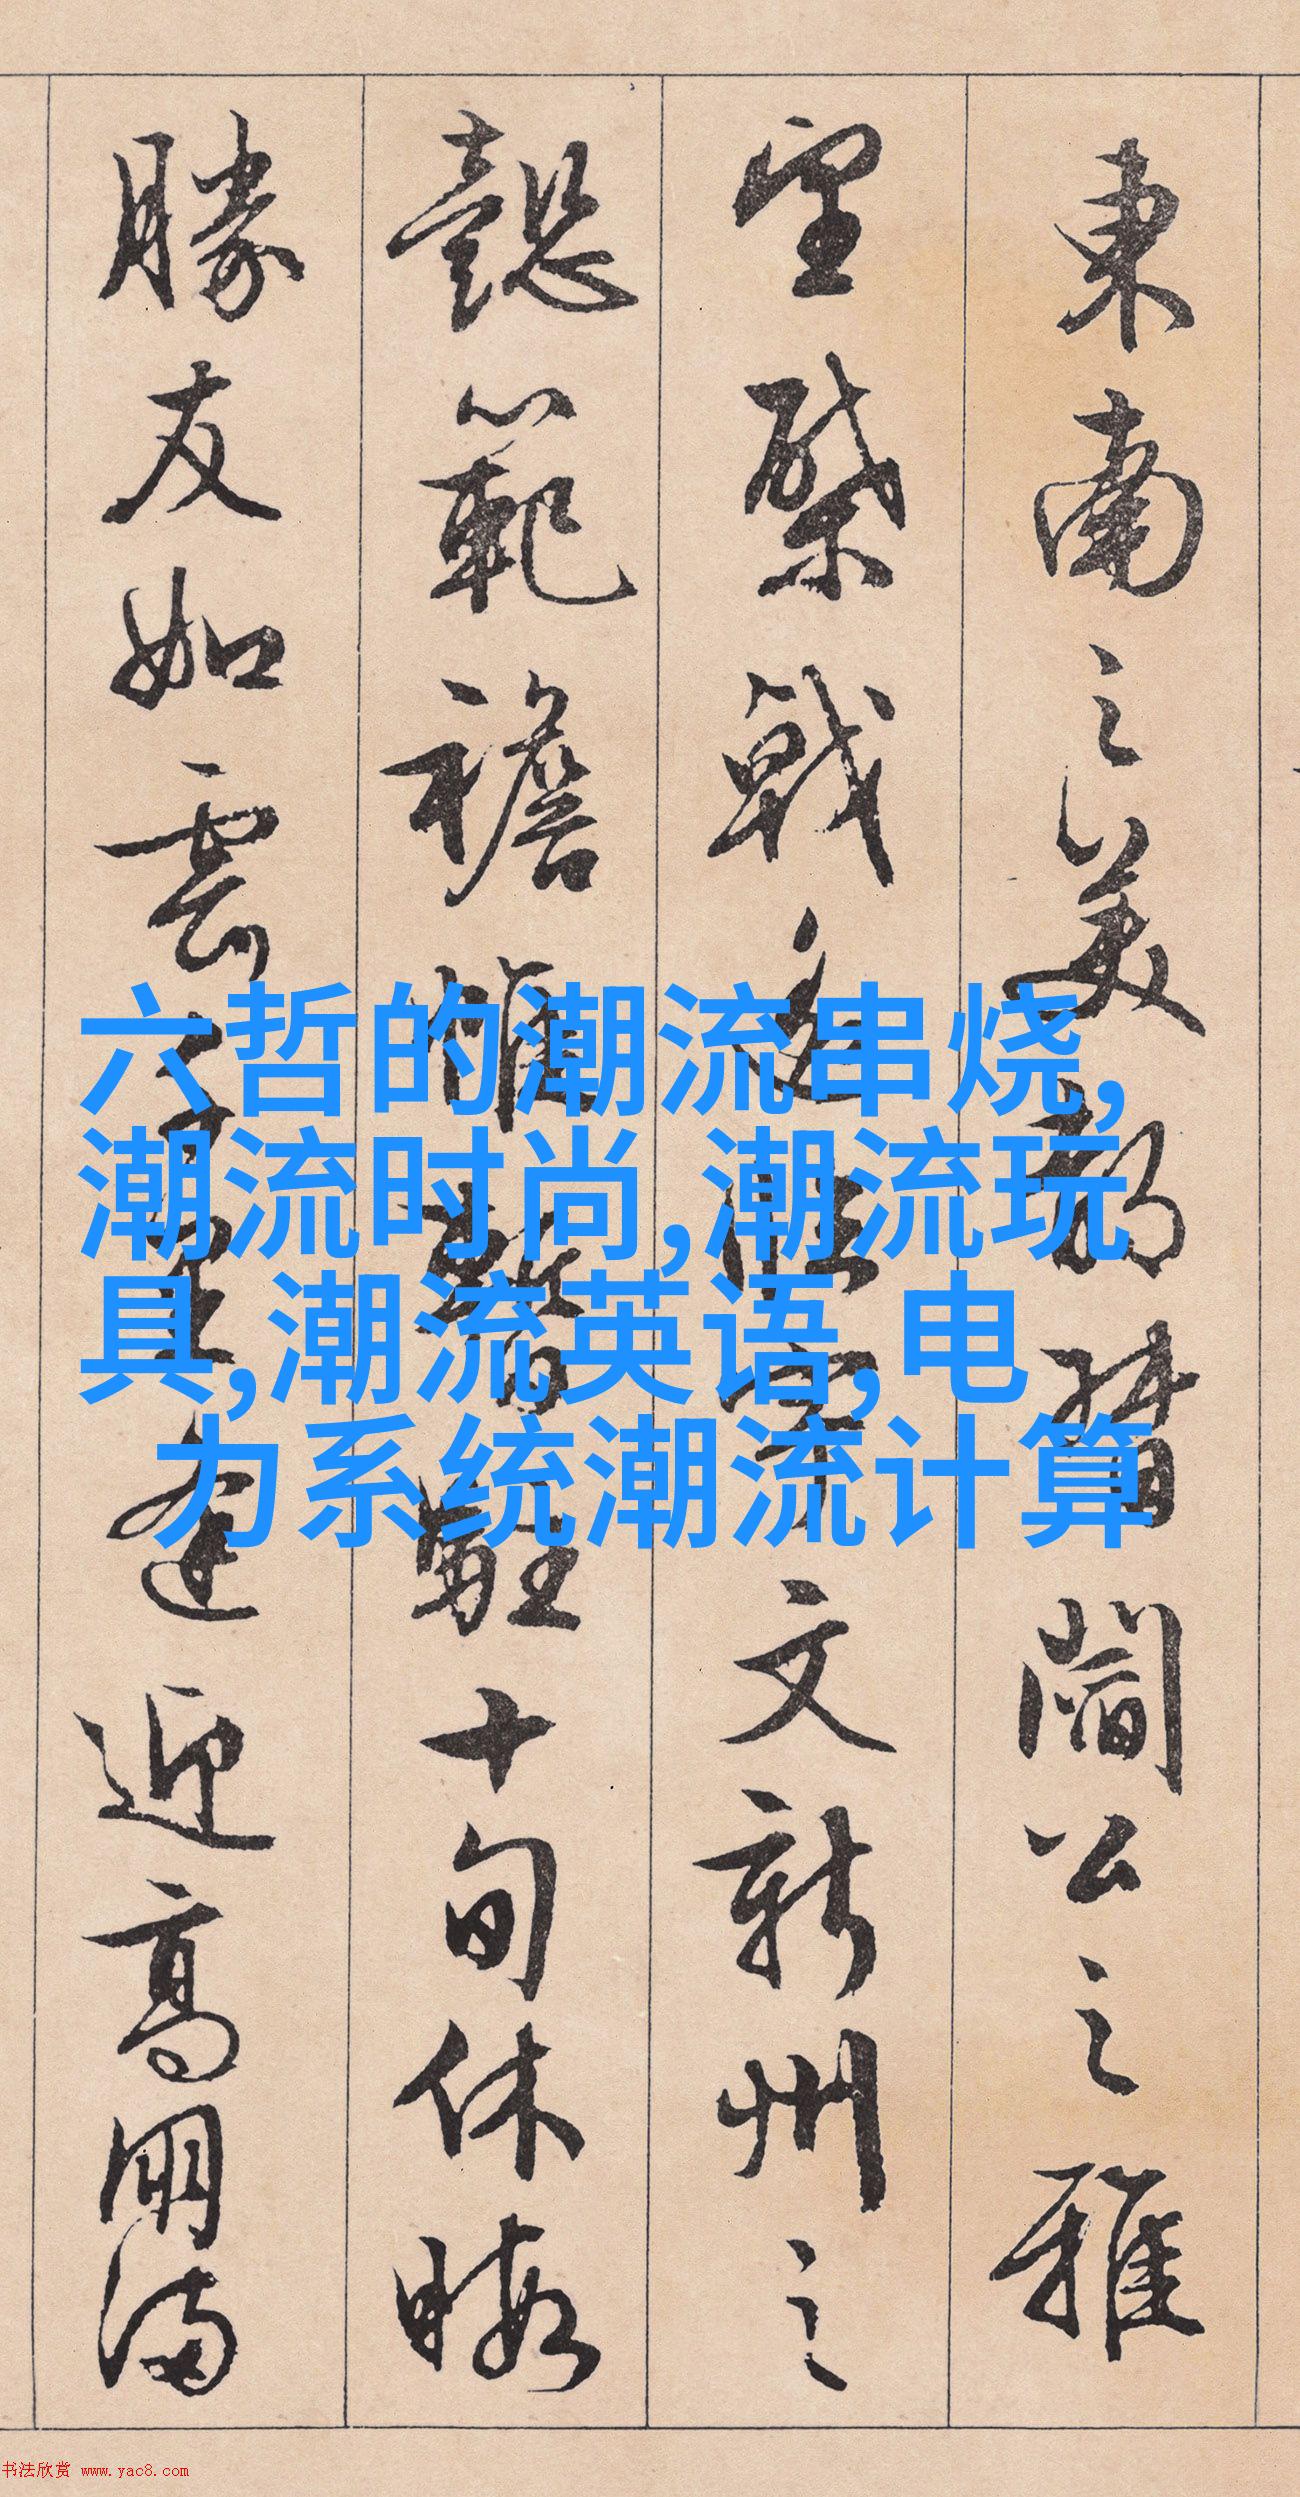 東南之美都督閻公之雅
望棨戟遙臨宇文新州之
懿範襜帷暫駐十旬休暇
勝友如雲千里逢迎高朋滿
六哲的潮流串烧,
潮流时尚,潮流玩
具,潮流英语,电
力系统潮流计算
书法欣赏 www.yac8.com